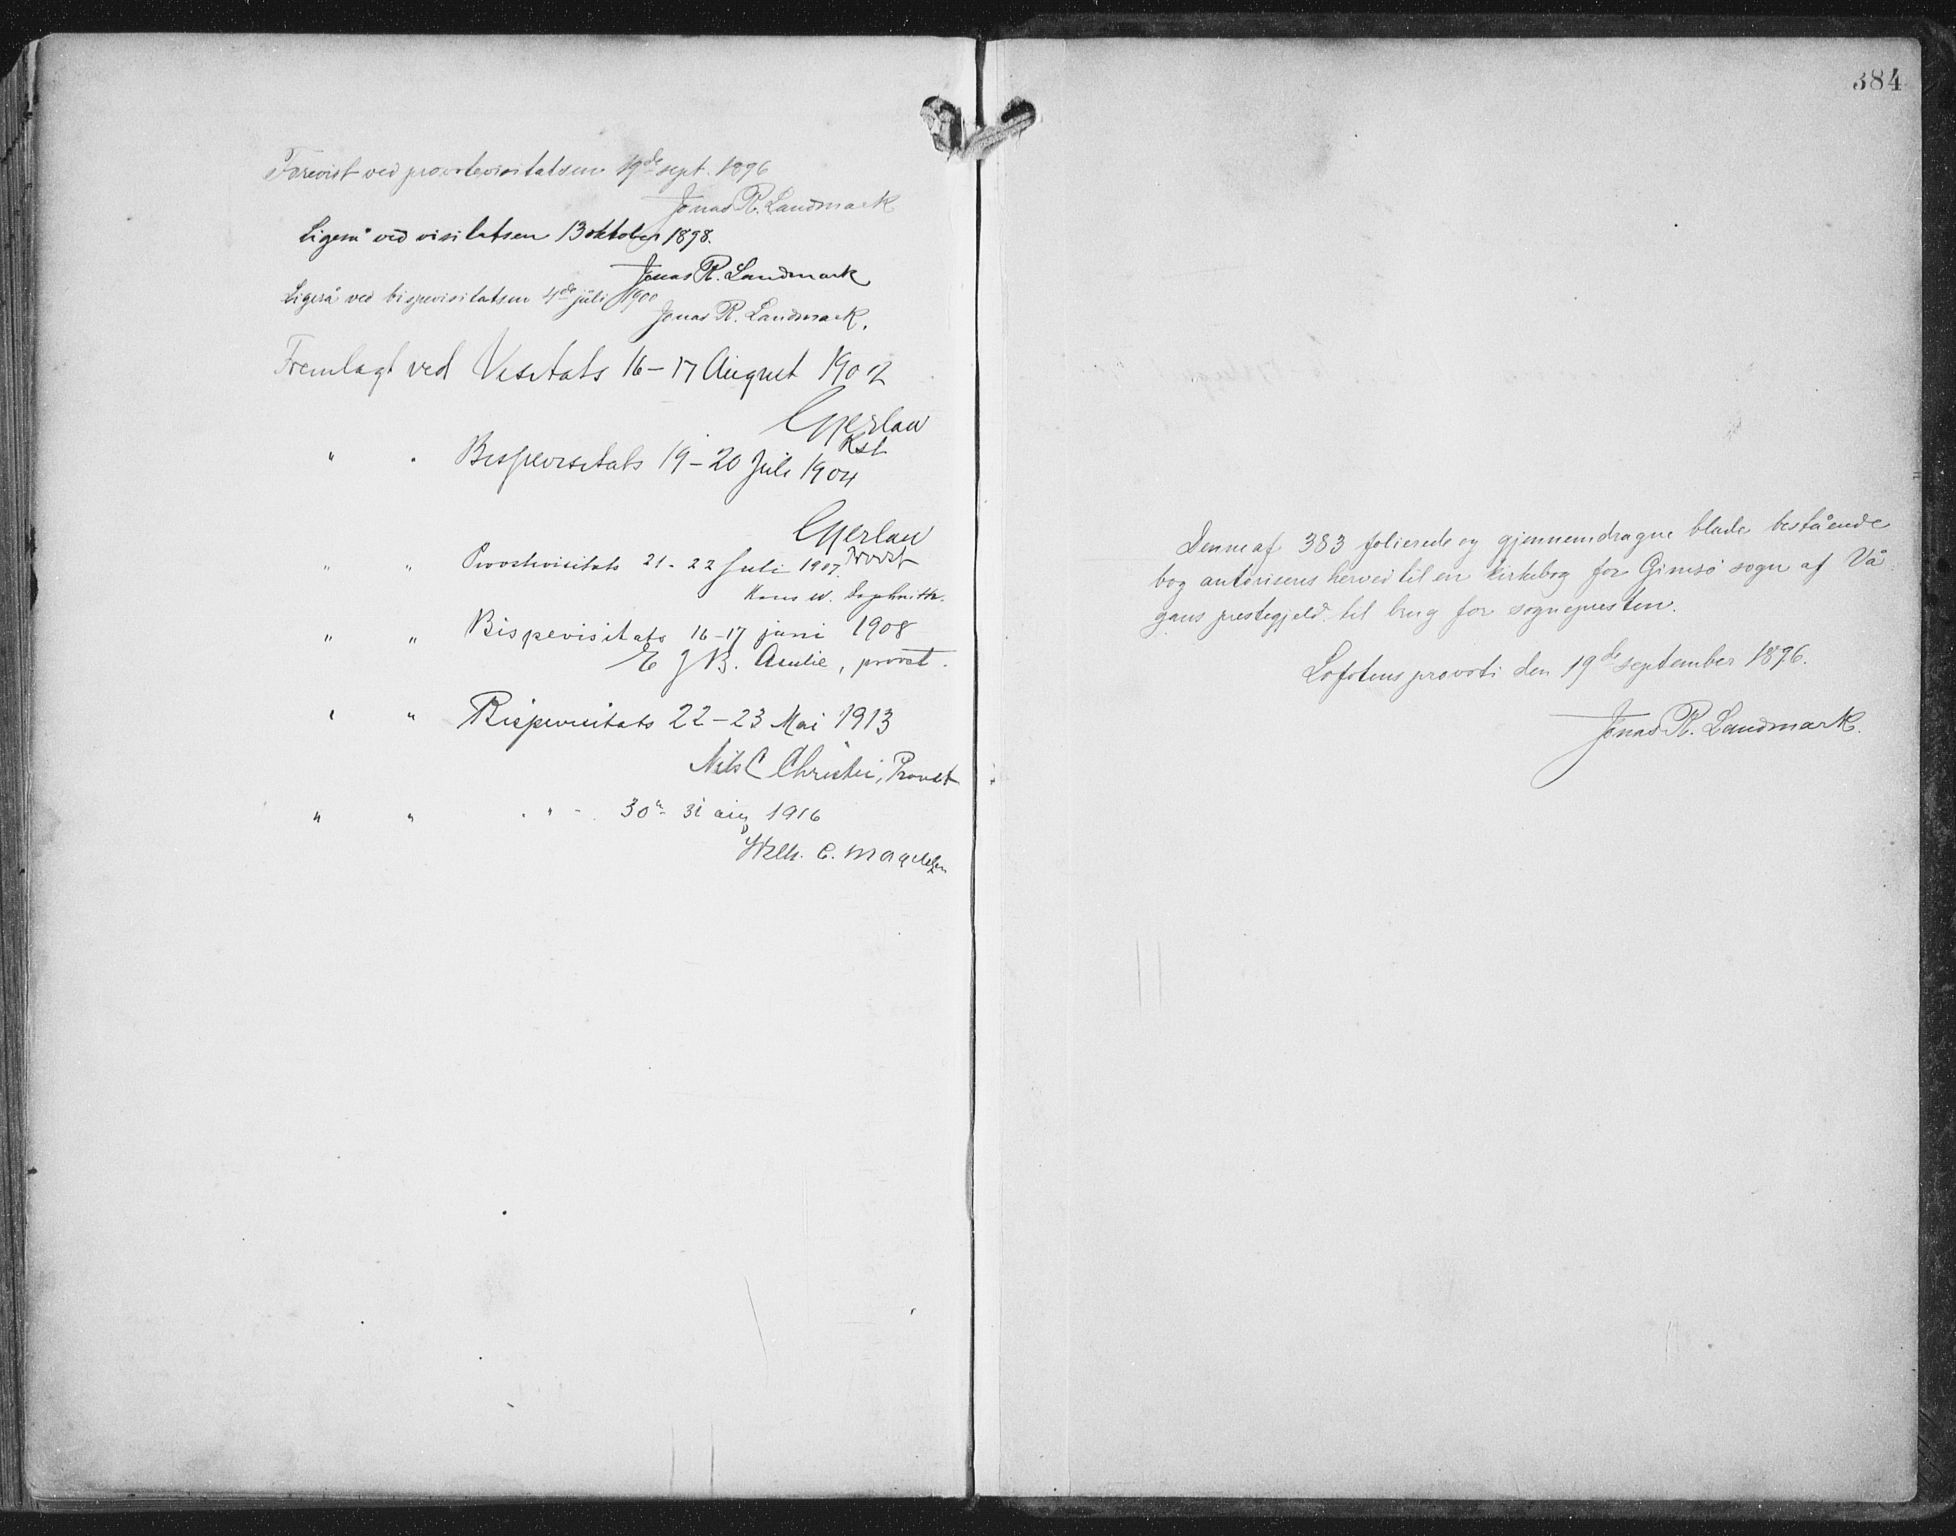 Forevist ved provstevisitatsen 19de sept. 1896
Jonas R. Landmark
Ligeså ved visitatsen 13 oktober 1898.
Jonas R. Landmark
Ligeså ved bispevisitatsen 4de juli 1900
Jonas R. Landmark.
Fremlagt ved Visitats 16–17 August 1902
Gjerlau
Kst
" " Bispevisitats 19–20 Juli 1904
Gjerlau
Provst
" " Provstevisitats 21–22 Juli 1907.
Hans W.
" " Bispevisitats 16–17 juni 1908
E J B. , provst.
" " Bispevisitats 22–23 Mai 1913
Nils C Christie, Provst
" " " 30–31 aug 1916
Wilh. C. Magelssen
384
Denne af 383 folierede og gjennemdragne blade bestående
bog autoriseres herved til en kirkebog for Gimsø sogn af Vå-
gans prestegjeld til brug for sognepresten.
Lofotens provsti den 19de september 1896.
Jonas R. Landmark.